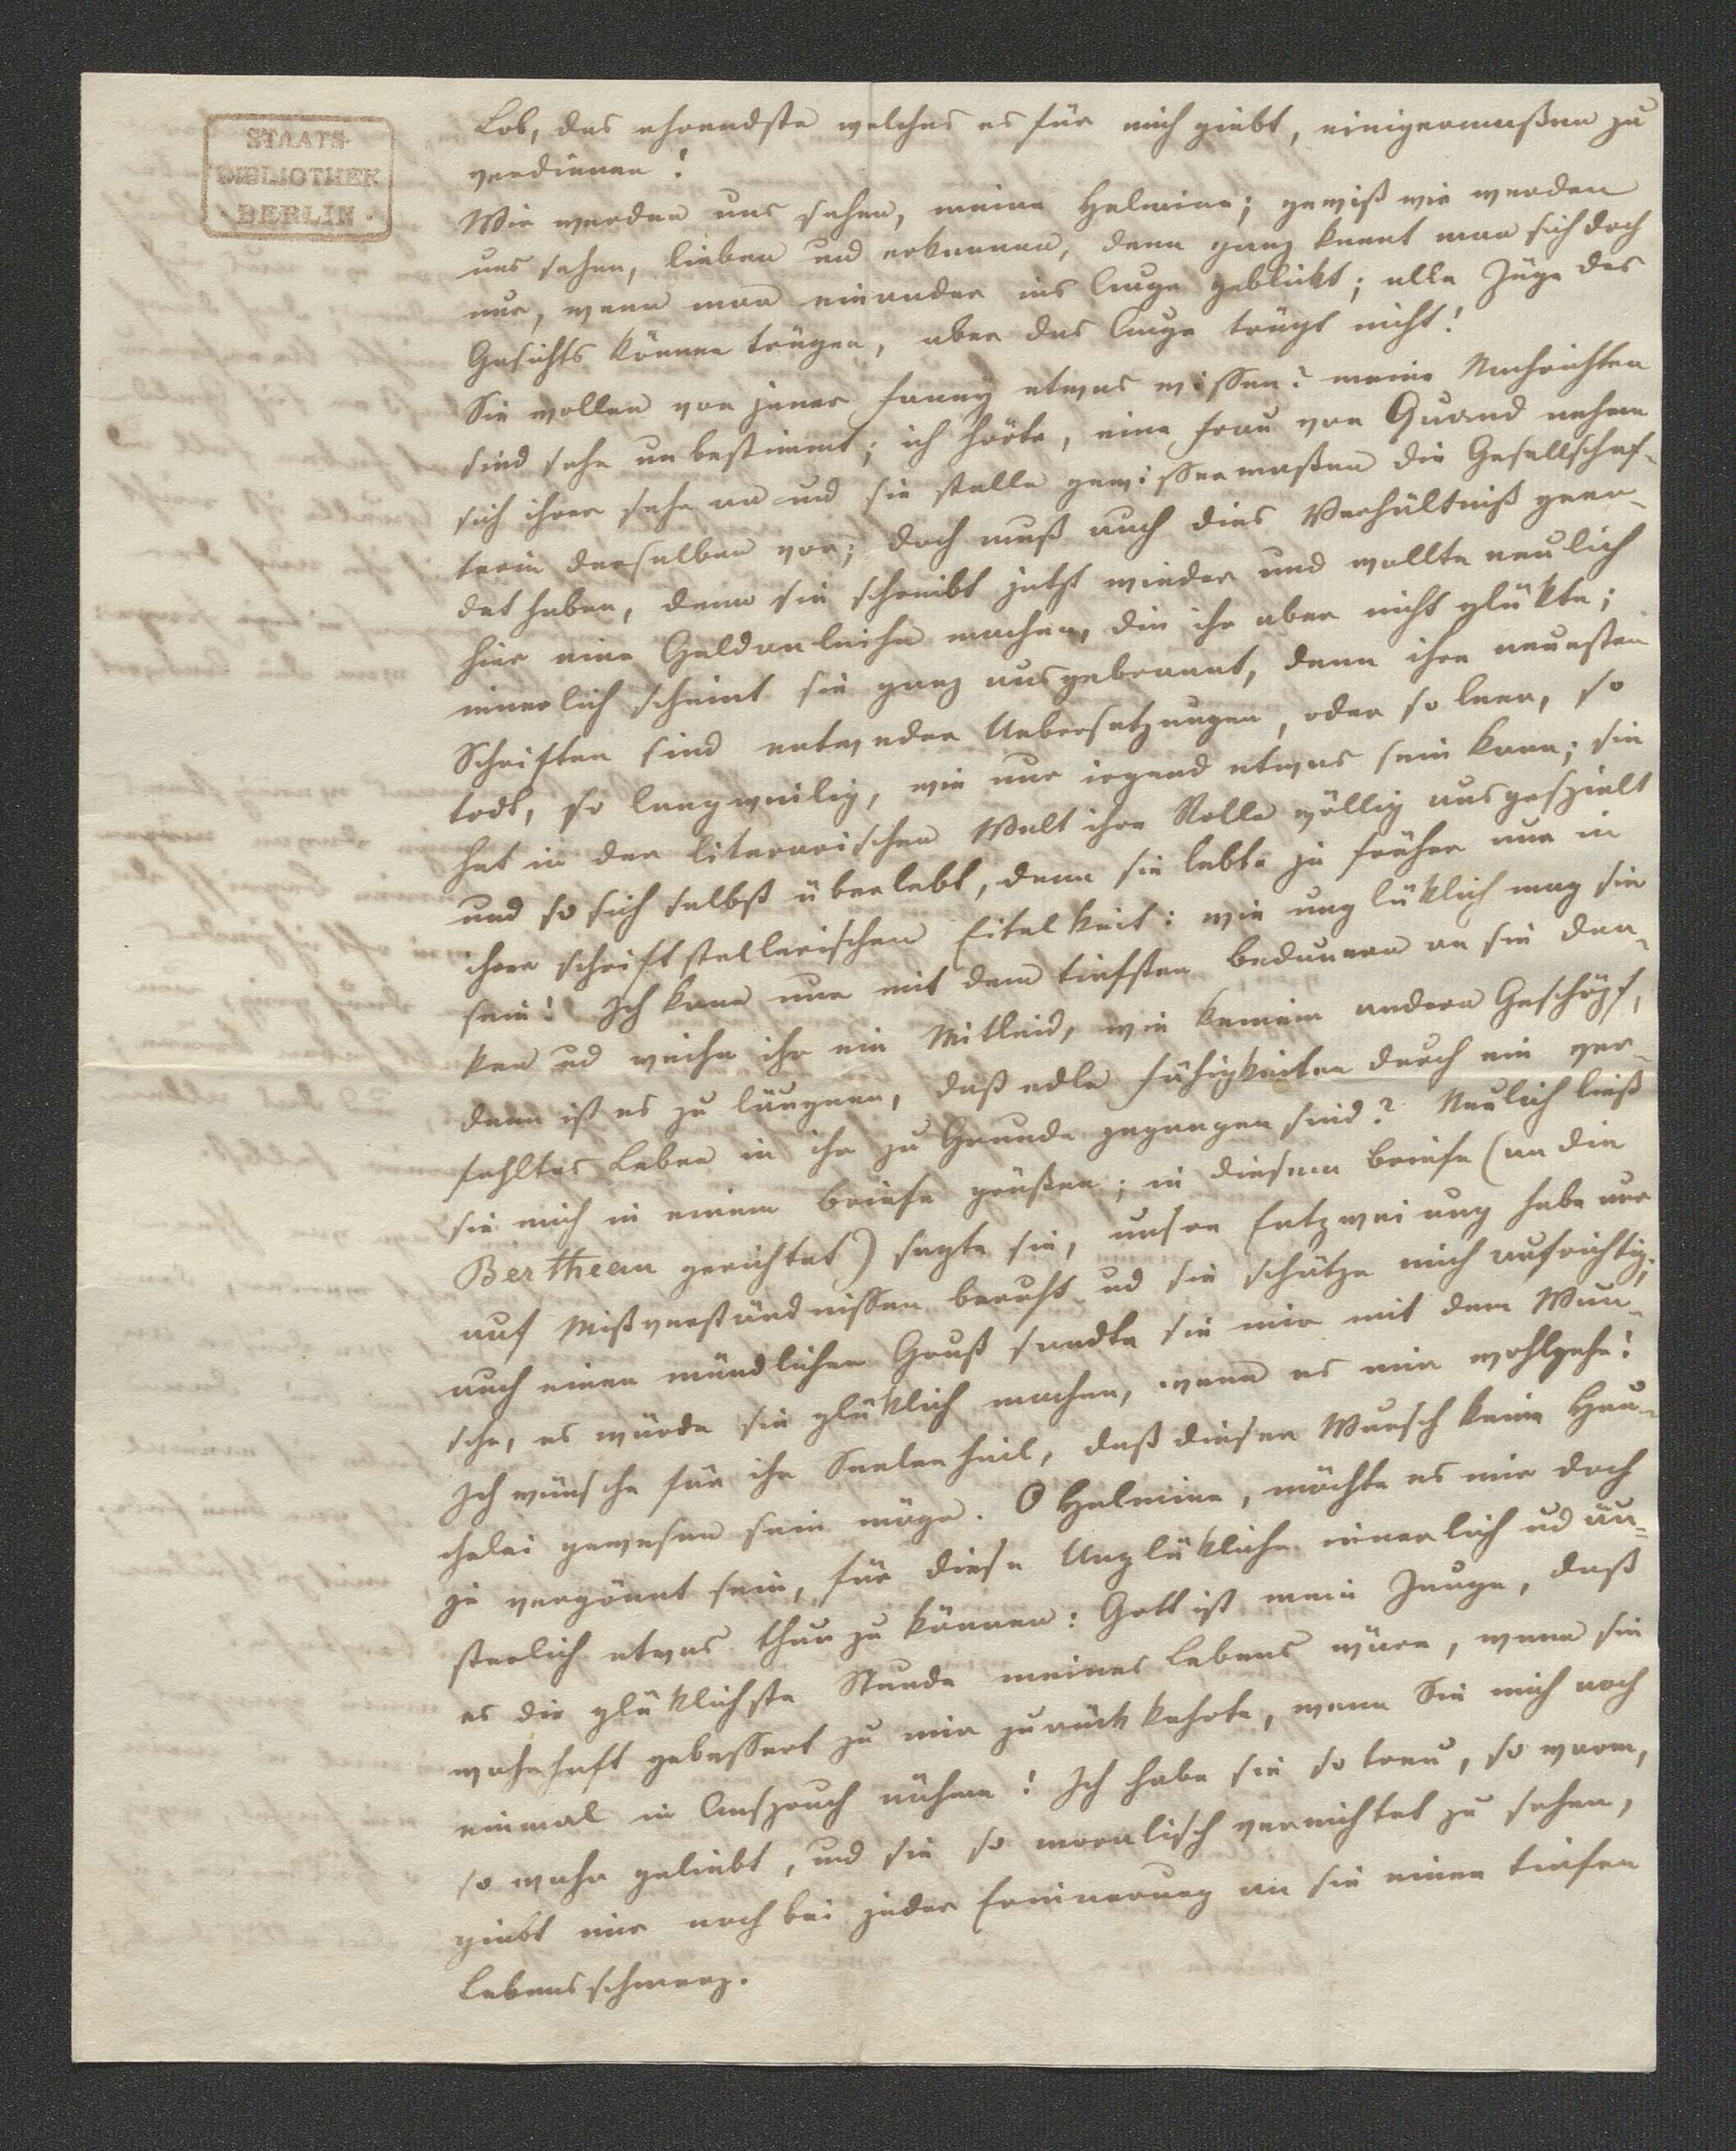 STAATS-
BIBLIOTHEK
· BERLIN ·
Lob, das ehrendste welches es für mich giebt, einigermaßen zu
verdienen!
Wir werden uns sehen, meine Helmina; gewiß wir werden
uns sehen, lieben und erkennen, denn ganz kennt man sich doch
nur, wenn man einander ins Auge geblickt; alle Züge des
Gesichts können trügen, aber das Auge trügt nicht!
Sie wollen von jener Fanny etwas wissen? meine Nachrichten
sind sehr unbestimmt; ich hörte, eine Frau von Quand nehme
sich ihrer sehr an und sie stelle gewissermaßen die Gesellschaf-
terin derselben vor; doch muß auch dies Verhältniß geen-
det haben, denn sie schreibt jetzt wieder und wollte neulich
hier eine Geldanleihe machen, die ihr aber nicht glükte;
innerlich scheint sie ganz ausgebrannt, denn ihre neuesten
Schriften sind entweder Uebersetzungen, oder so leer, so
todt, so langweilig, wie nur irgend etwas sein kann; sie
hat in der literarischen Welt ihre Rolle völlig ausgespielt
und so sich selbst überlebt, denn sie lebte ja früher nur in
ihrer schriftstellerischen Eitelkeit: wie unglüklich mag sie
sein! Ich kann nur mit dem tiefsten Bedauern an sie den-
ken und weihe ihr ein Mitleid, wie keinem andern Geschöpf,
denn ist es zu läugnen, daß edle Fähigkeiten durch ein ver-
fehltes Leben in ihr zu Grunde gegangen sind? Neulich ließ
sie mich in einem Briefe grüßen; in diesem Briefe (an die
Bertheau gerichtet) sagte sie, unsre Entzweiung habe nur
auf Mißverständnissen beruht und sie schätze mich aufrichtig;
auch einen mündlichen Gruß sandte sie mir mit dem Wun-
sche, es würde sie glüklich machen, wenn es mir wohlgehe!
Ich wünsche für ihr Seelenheil, daß dieser Wunsch keine Heu-
chelei gewesen sein möge. O Helmina, möchte es mir doch
je vergönnt sein, für diese Unglükliche innerlich und äu-
ßerlich etwas thun zu können: Gott ist mein Zeuge, daß
es die glüklichste Stunde meines Lebens wäre, wenn sie
wahrhaft gebessert zu mir zurückkehrte, wenn Sie mich noch
einmal in Anspruch nähme! Ich habe sie so treu, so warm,
so wahr geliebt, und sie so moralisch vernichtet zu sehen,
giebt mir noch bei jeder Erinnerung an sie einen tiefen
Lebensschmerz.